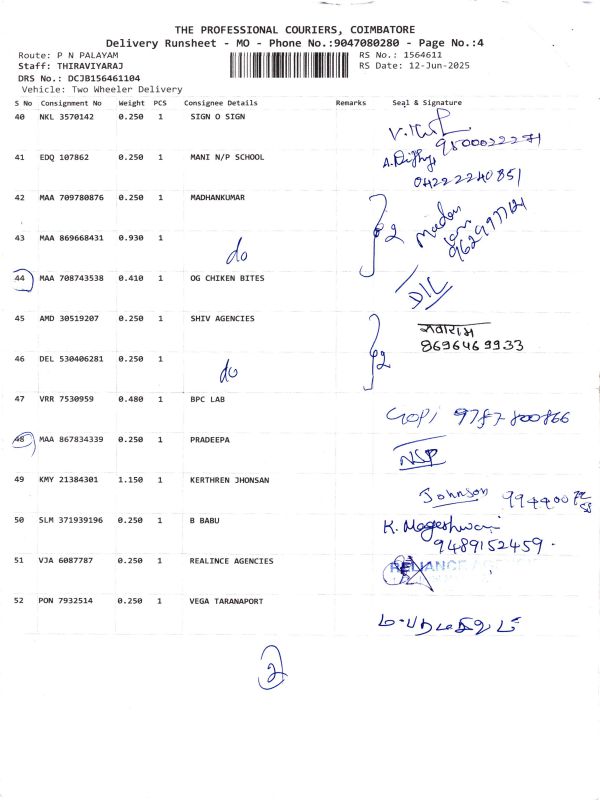 THE PROFESSIONAL COURIERS, COIMBATORE
Delivery Runsheet - MO - Phone No.:9047080280 - Page No.:4
Route: P N PALAYAM
RS No.: 1564611
Staff: THIRAVIYARAJ
RS Date: 12-Jun-2025
DRS No.: DCJB156461104
Vehicle: Two Wheeler Delivery
S No Consignment No Weight PCS Consignee Details Remarks Seal & Signature
40 NKL 3570142 0.250 1 SIGN O SIGN
9500022271
41 EDQ 107862 0.250 1 MANI N/P SCHOOL
04222240851
42 MAA 709780876 0.250 1 MADHANKUMAR 2
43 MAA 869668431 0.930 1 do
44 MAA 708743538 0.410 1 OG CHIKEN BITES D/L
45 AMD 30519207 0.250 1 SHIV AGENCIES 2
8696469933
46 DEL 530406281 0.250 1 do
47 VRR 7530959 0.480 1 BPC LAB GOPI 9787800866
48 MAA 867834339 0.250 1 PRADEEPA NSP
49 KMY 21384301 1.150 1 KERTHREN JHONSAN Johnson
50 SLM 371939196 0.250 1 B BABU K. Mageshwari
9489152459.
51 VJA 6087787 0.250 1 REALINCE AGENCIES RELIANCE
52 PON 7932514 0.250 1 VEGA TARANAPORT
2